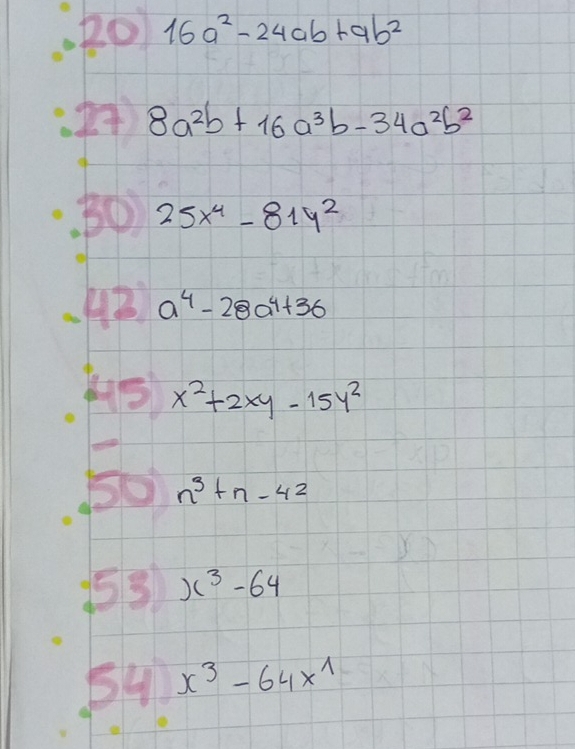 20) 16a² - 24ab + 9b²
27) 8a²b + 16a³b - 34a²b²
30) 25x⁴ - 81y²
42) a⁴ - 28a⁴ + 36
45) x² + 2xy - 15y²
50) n³ + n - 42
53) x³ - 64
54) x³ - 64x¹